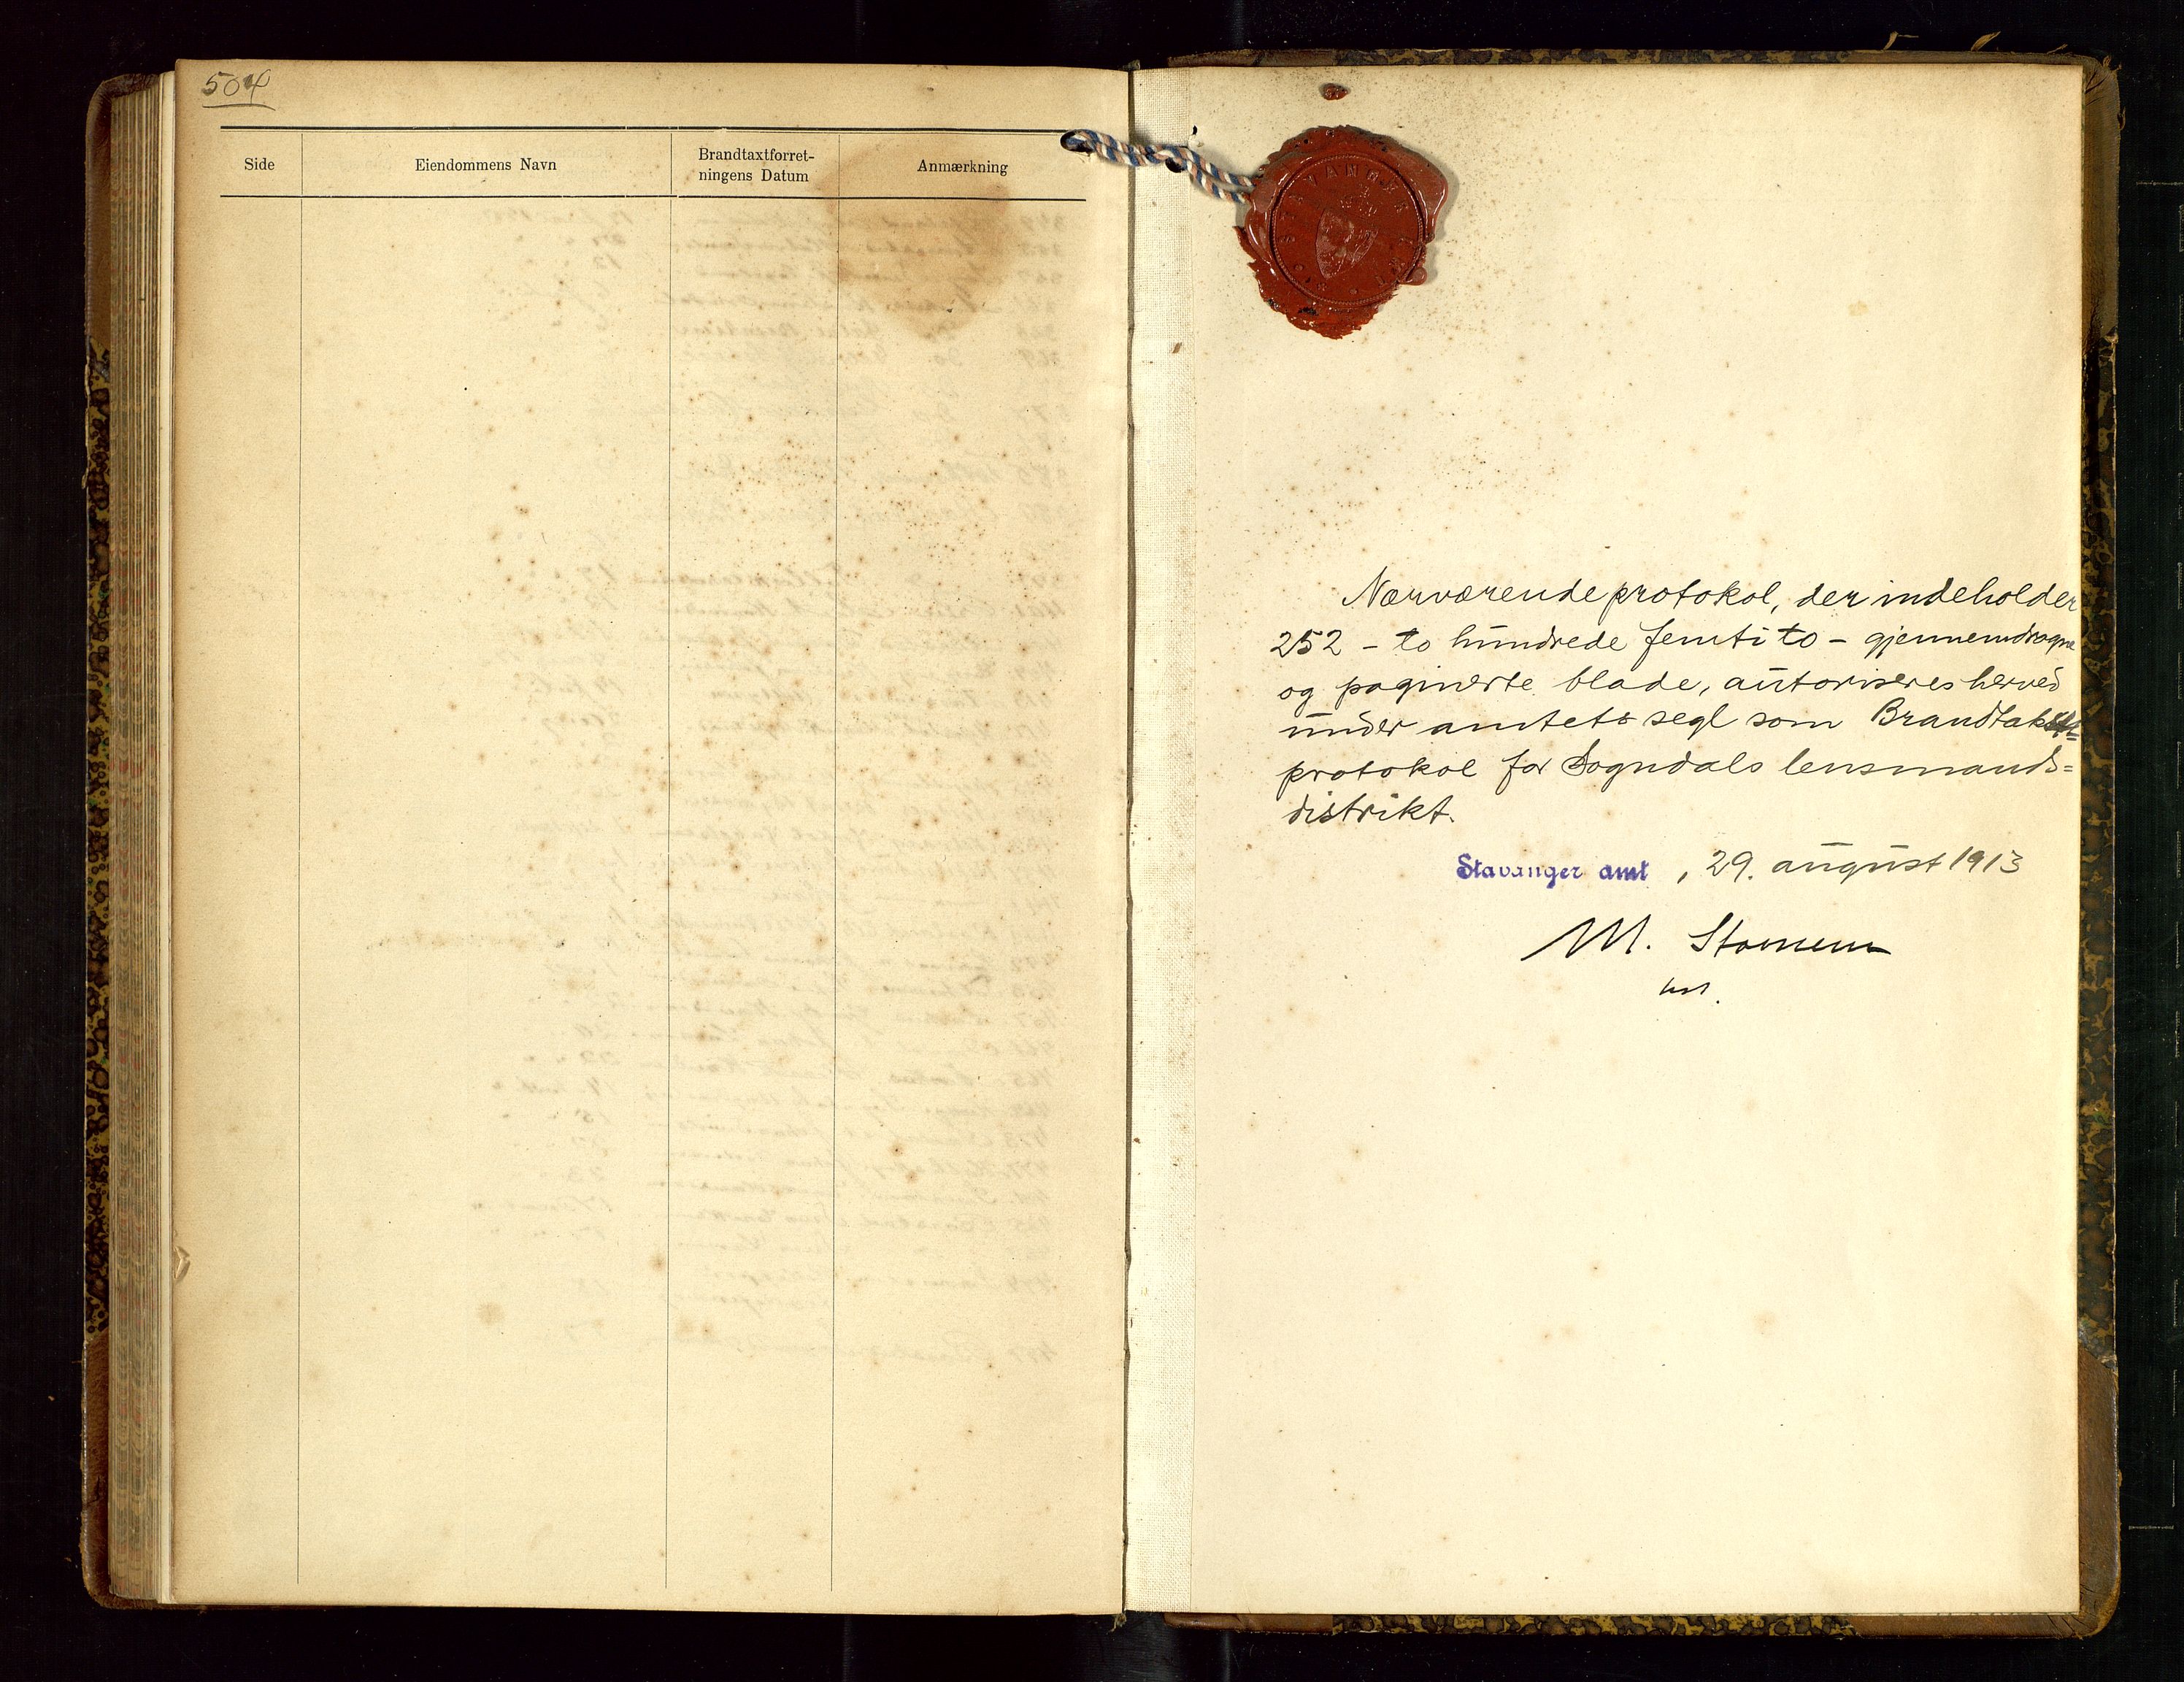 504
Side
Eiendommens Navn
Brandtaxtforret-
ningens Datum
Anmærkning
STAVANGER AMT
Nærværende protokol, der indeholder
252 - to hundrede femti to - gjennemdragne
og paginerte blade, autoriseres herved
under amtets segl som Brandtakst-
protokol for Sogndals lensmands=
distrikt.
Stavanger amt , 29. august 1913
M.